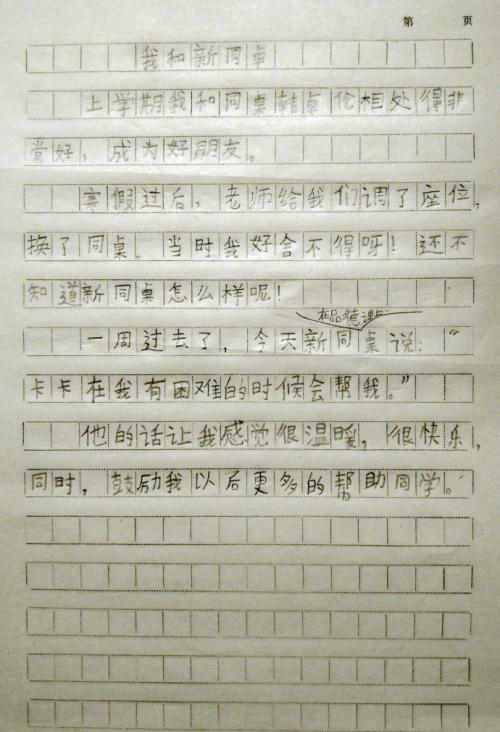 第 页
我和新同桌
上学期我和同桌韩卓伦相处得非
常好，成为好朋友。
寒假过后，老师给我们调了座位，
换了同桌。当时我好舍不得呀！还不
知道新同桌怎么样呢！
在品德课上
一周过去了，今天新同桌说：“
卡卡在我有困难的时候会帮我。”
他的话让我感觉很温暖，很快乐，
同时，鼓励我以后更多的帮助同学。